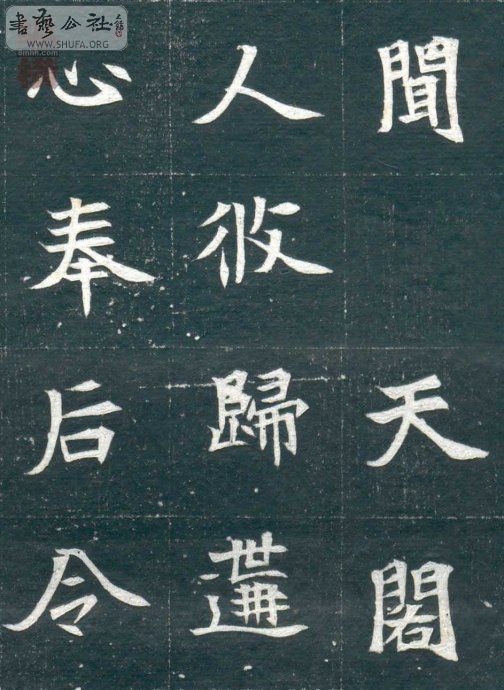 書藝公社
WWW.SHUFA.ORG
聞天閣
人攸歸遘
心奉后令